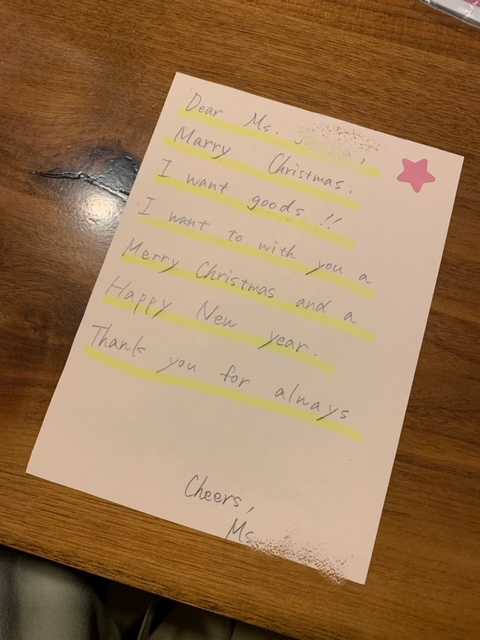 Dear Ms.
Marry Christmas.
I want goods !!
I want to with you a
Merry Christmas and a
Happy New year.
Thank you for always
Cheers,
Ms.